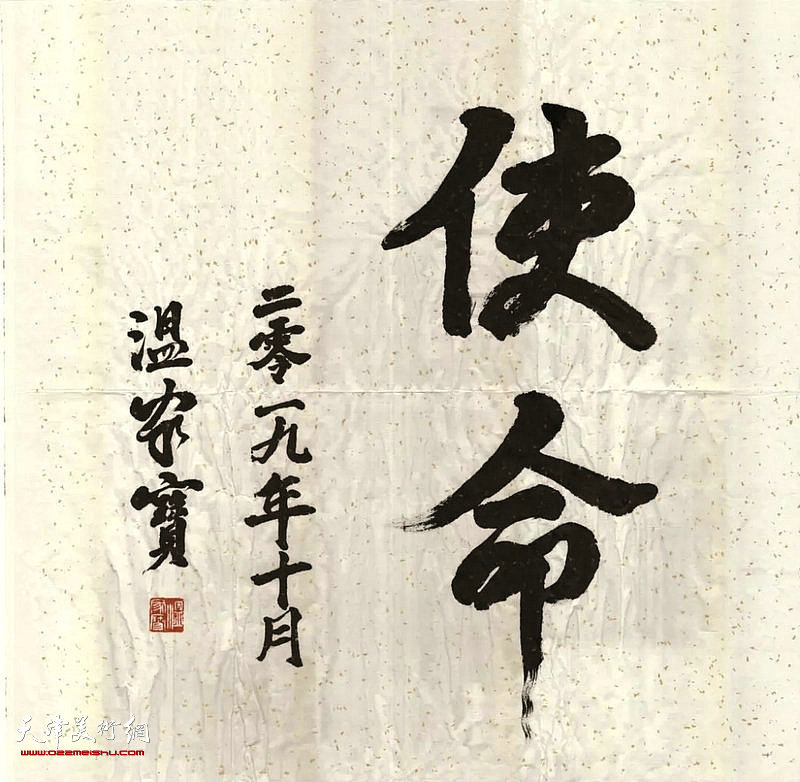 使命
二零一九年十月
溫家寶
天津美術網
www.022meishu.com